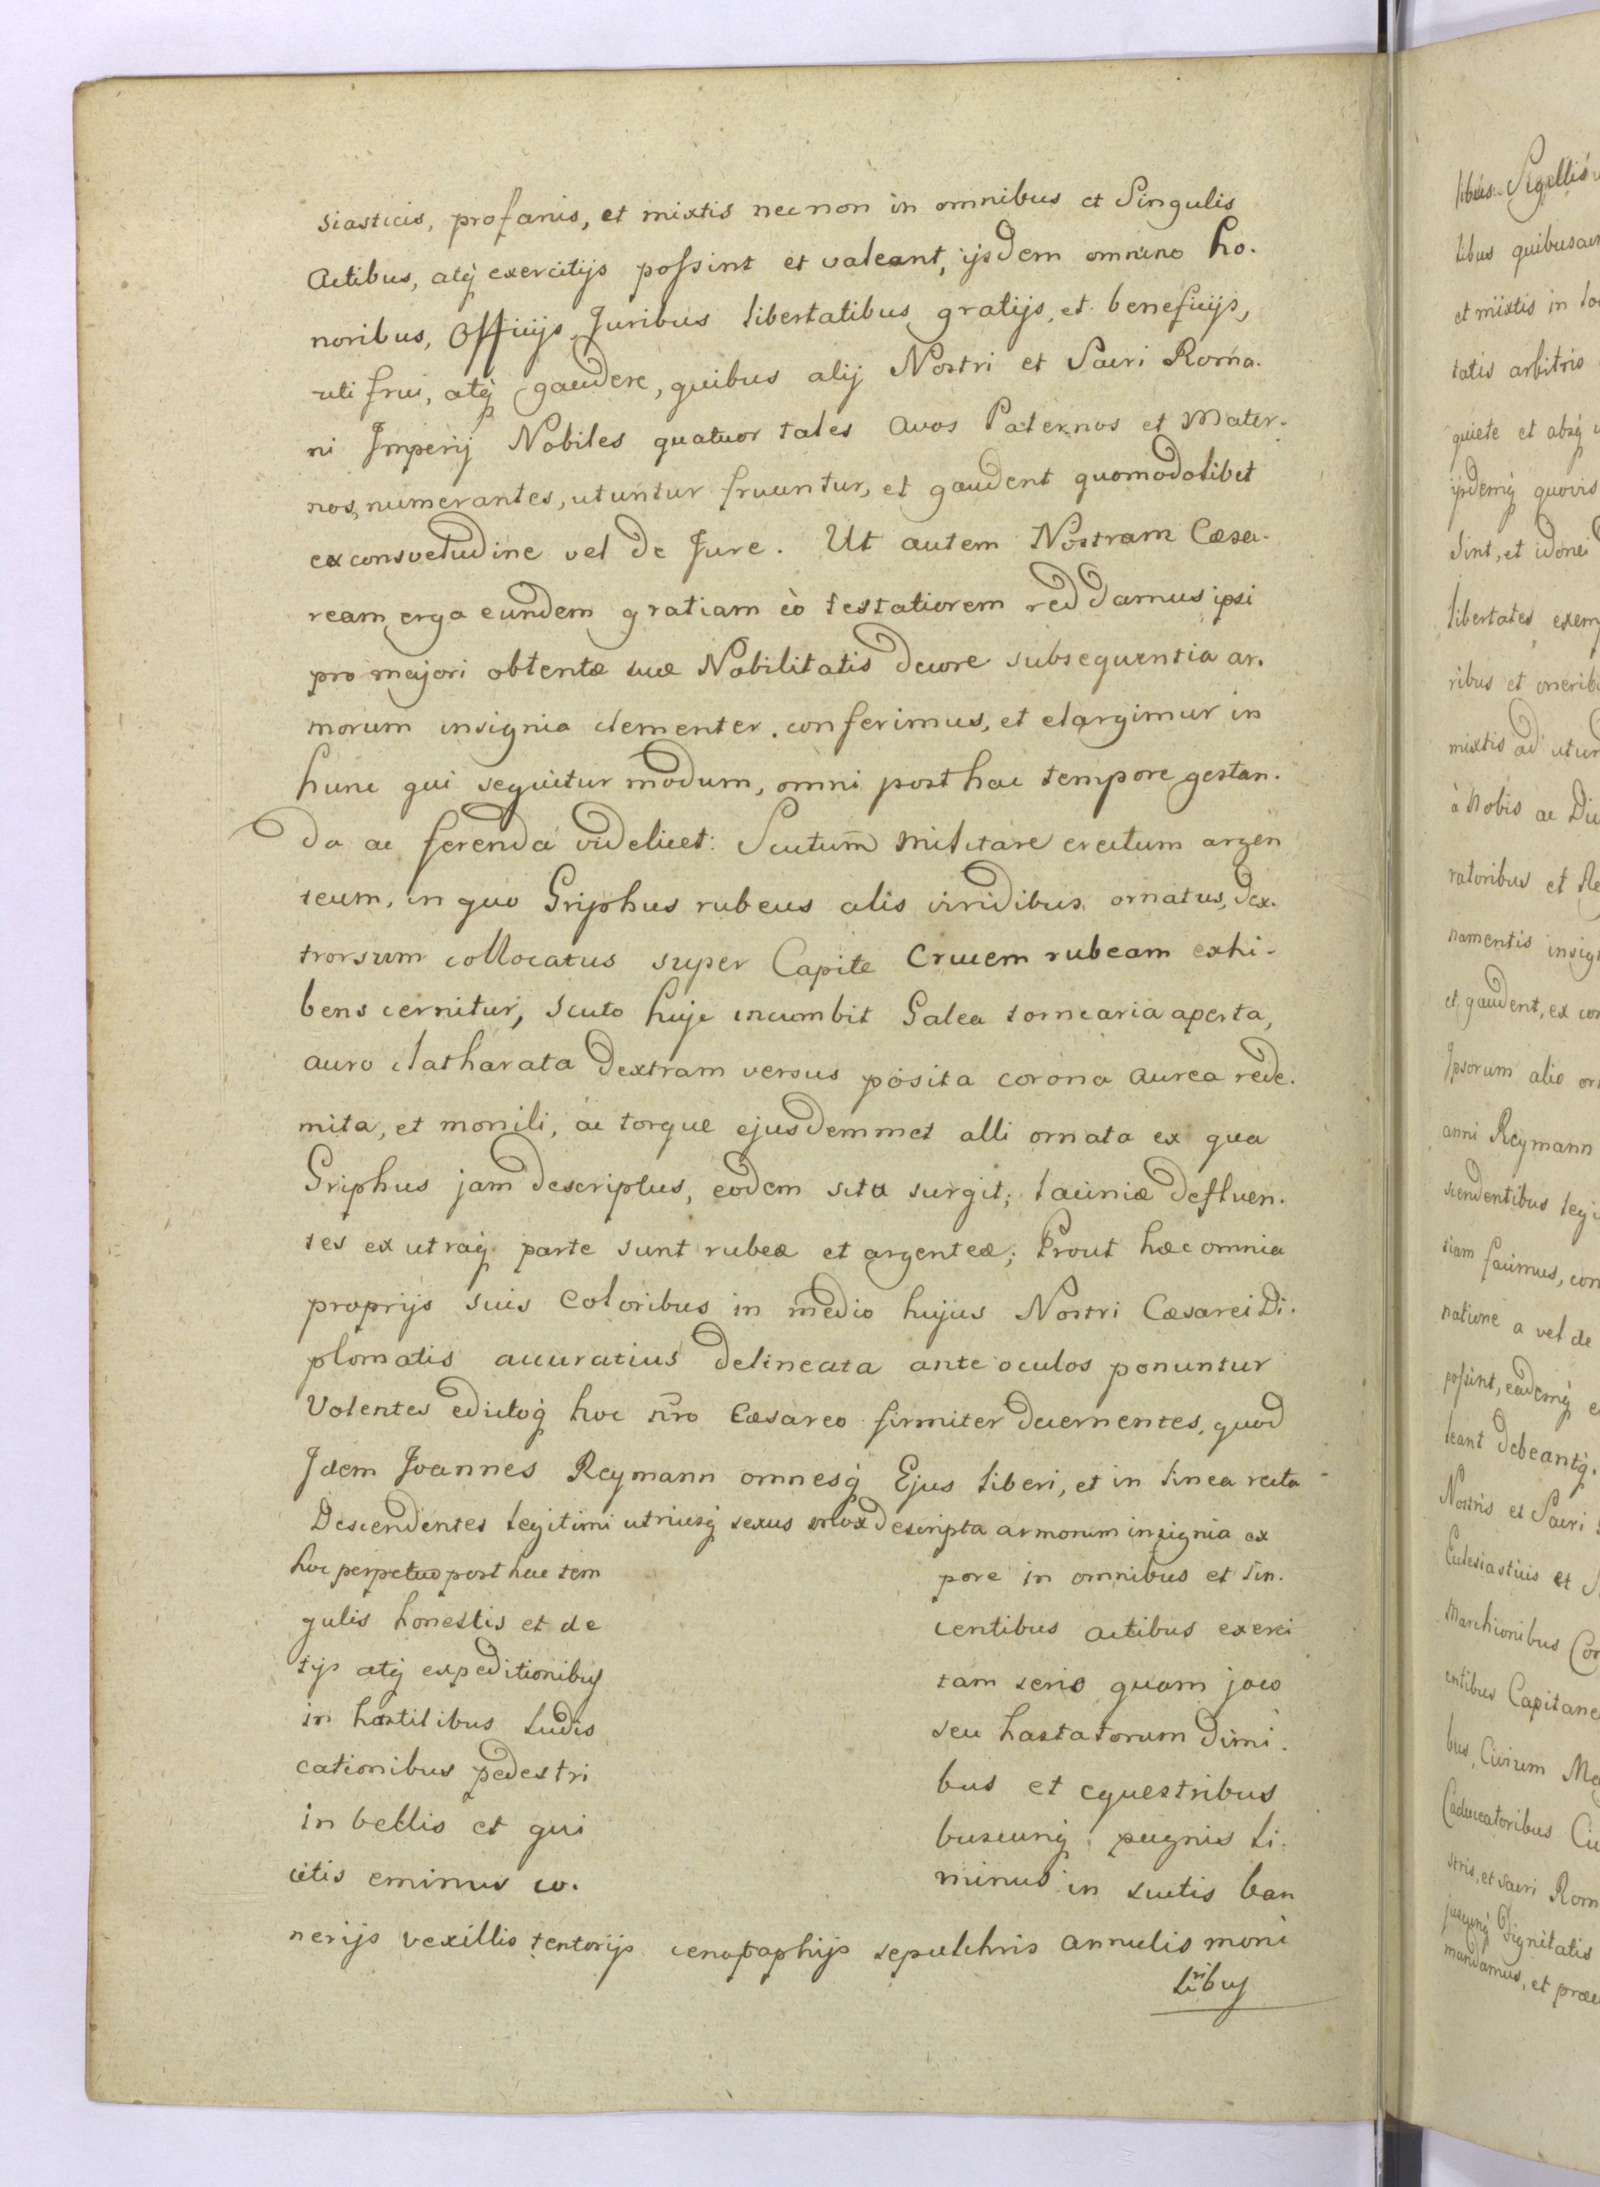 siasticis, profanis, et mixtis nec non in omnibus et Singulis
Actibus, atq exercitijs possint et valeant, ijsdem omnino Ho.
noribus, Officijs Juribus libertatibus gratijs, et beneficijs,
uti frui, atq gaudere, quibus alij Nostri et Sacri Roma.
ni Imperij Nobiles quatuor tales Avos Paternos et Mater.
nos, numerantes, utuntur fruuntur, et gaudent quomodolibet
ex consvetudine vel de Jure. Ut autem Nostram Cæsa.
ream erga eundem gratiam eò testatiorem reddamus ipsi
pro majori obtentæ suæ Nobilitatis decore subsequentia ar.
morum insignia clementer conferimus, et elargimur in
hunc qui sequitur modum, omni post hac tempore gestan.
da ac ferenda videlicet: Scutum Militare erectum argen
teum, in quo Griphus rubeus alis viridibus ornatus, dex.
trorsum collocatus super Capite Crucem rubeam exhi-
bens cernitur, scuto huic incumbit Galea tornearia aperta,
auro clatharata dextram versus posita corona aurea rede.
mita, et monili, ac torque ejusdemmet alli ornata ex qua
Griphus jam descriptus, eodem situ surgit; laciniæ defluen.
tes ex utraq parte sunt rubeæ et argenteæ; Prout hæc omnia
proprijs suis Coloribus in medio hujus Nostri Cæsarei Di.
plomatis accuratius delineata ante oculos ponuntur
Volentes edictoq hoc nro Cæsareo firmiter decernentes, quod
Idem Joannes Reymann omnesq Ejus liberi, et in linea recta
Descendentes legitimi utriusq sexus descripta armorum insignia ex
hoc perpetuo post hac tem pore in omnibus et sin.
gulis honestis et de centibus actibus exerci
tijs atq expeditionibus tam serio quam joco
in hastilibus Ludis seu hastatorum dimi.
cationibus pedestri bus et equestribus
in bellis et qui buscunq pugnis li.
citis eminus co. minus in scutis ban
nerijs vexillis tentorijs cenotaphijs sepulchris annulis moni
libus

libus Sigellis
tibus quibuscun
et mixtis in lo
tatis arbitrio
quiete et absq
ijsdemq quovis
sint, et idonei
libertates exem
ribus et oneribu
mixtis ad utun
à Nobis ac Di
ratoribus et Re
namentis insig
et gaudent, ex con
Ipsorum alio or
anni Reymann
scendentibus legi
tiam facimus, con
natione a vel de
possint, eademq e
leant debeantq.
Nostris et Sacri
Ecclesiasticis et S
Marchionibus Co
entibus Capitane
bus, Civium Ma
Caduceatoribus Ci
stris, et sacri Rom
juscunq Dignitatis
mandamus, et præ